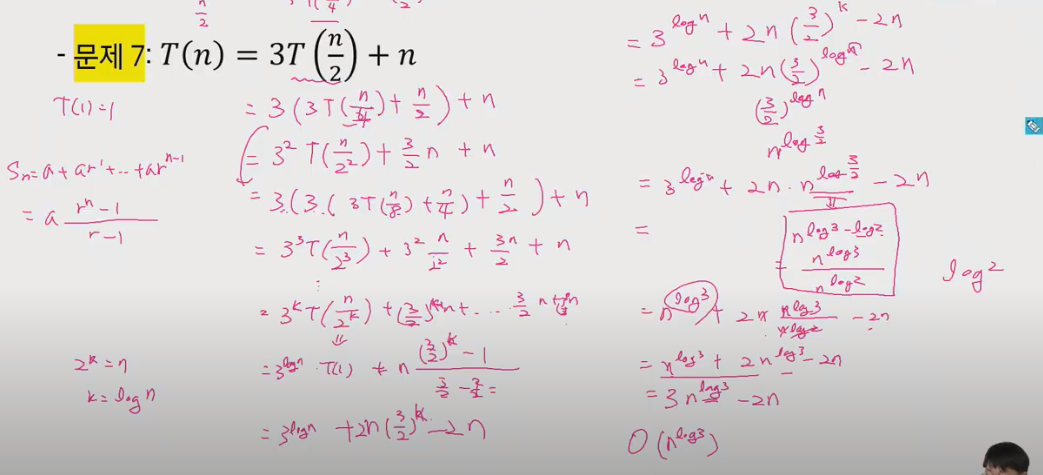 - 문제 7: T(n) = 3T(n/2) + n
T(1)=1
= 3(3T(n/4) + n/2) + n
= 3² T(n/2²) + 3/2 n + n
Sₙ = a + ar¹ + ... + arⁿ⁻¹
= a (rⁿ - 1)/(r - 1)
= 3(3(3T(n/8) + n/4) + n/2) + n
= 3³ T(n/2³) + 3² n/2² + 3n/2 + n
⋮
= 3ᵏ T(n/2ᵏ) + (3/2) n + ... 3/2 n +
2ᵏ = n
k = log n
= 3^(log n) · T(1) + n ((3/2)^k - 1)/(3/2 - 2/2) =
= 3^(log n) + 2n(3/2)^k - 2n
= 3^(log n) + 2n (3/2)^k - 2n
= 3^(log n) + 2n (3/2)^(log n) - 2n
(3/2)^(log n)
n^(log 3/2)
= 3^(log n) + 2n · n^(log 3/2) - 2n
⇓
=
n^(log 3 - log 2)
= n^(log 3) / n^(log 2)
log 2
= n^(log 3) + 2n n^(log 3)/n^(log 2) - 2n
= n^(log 3) + 2n^(log 3) - 2n
= 3n^(log 3) - 2n
O(n^(log 3))